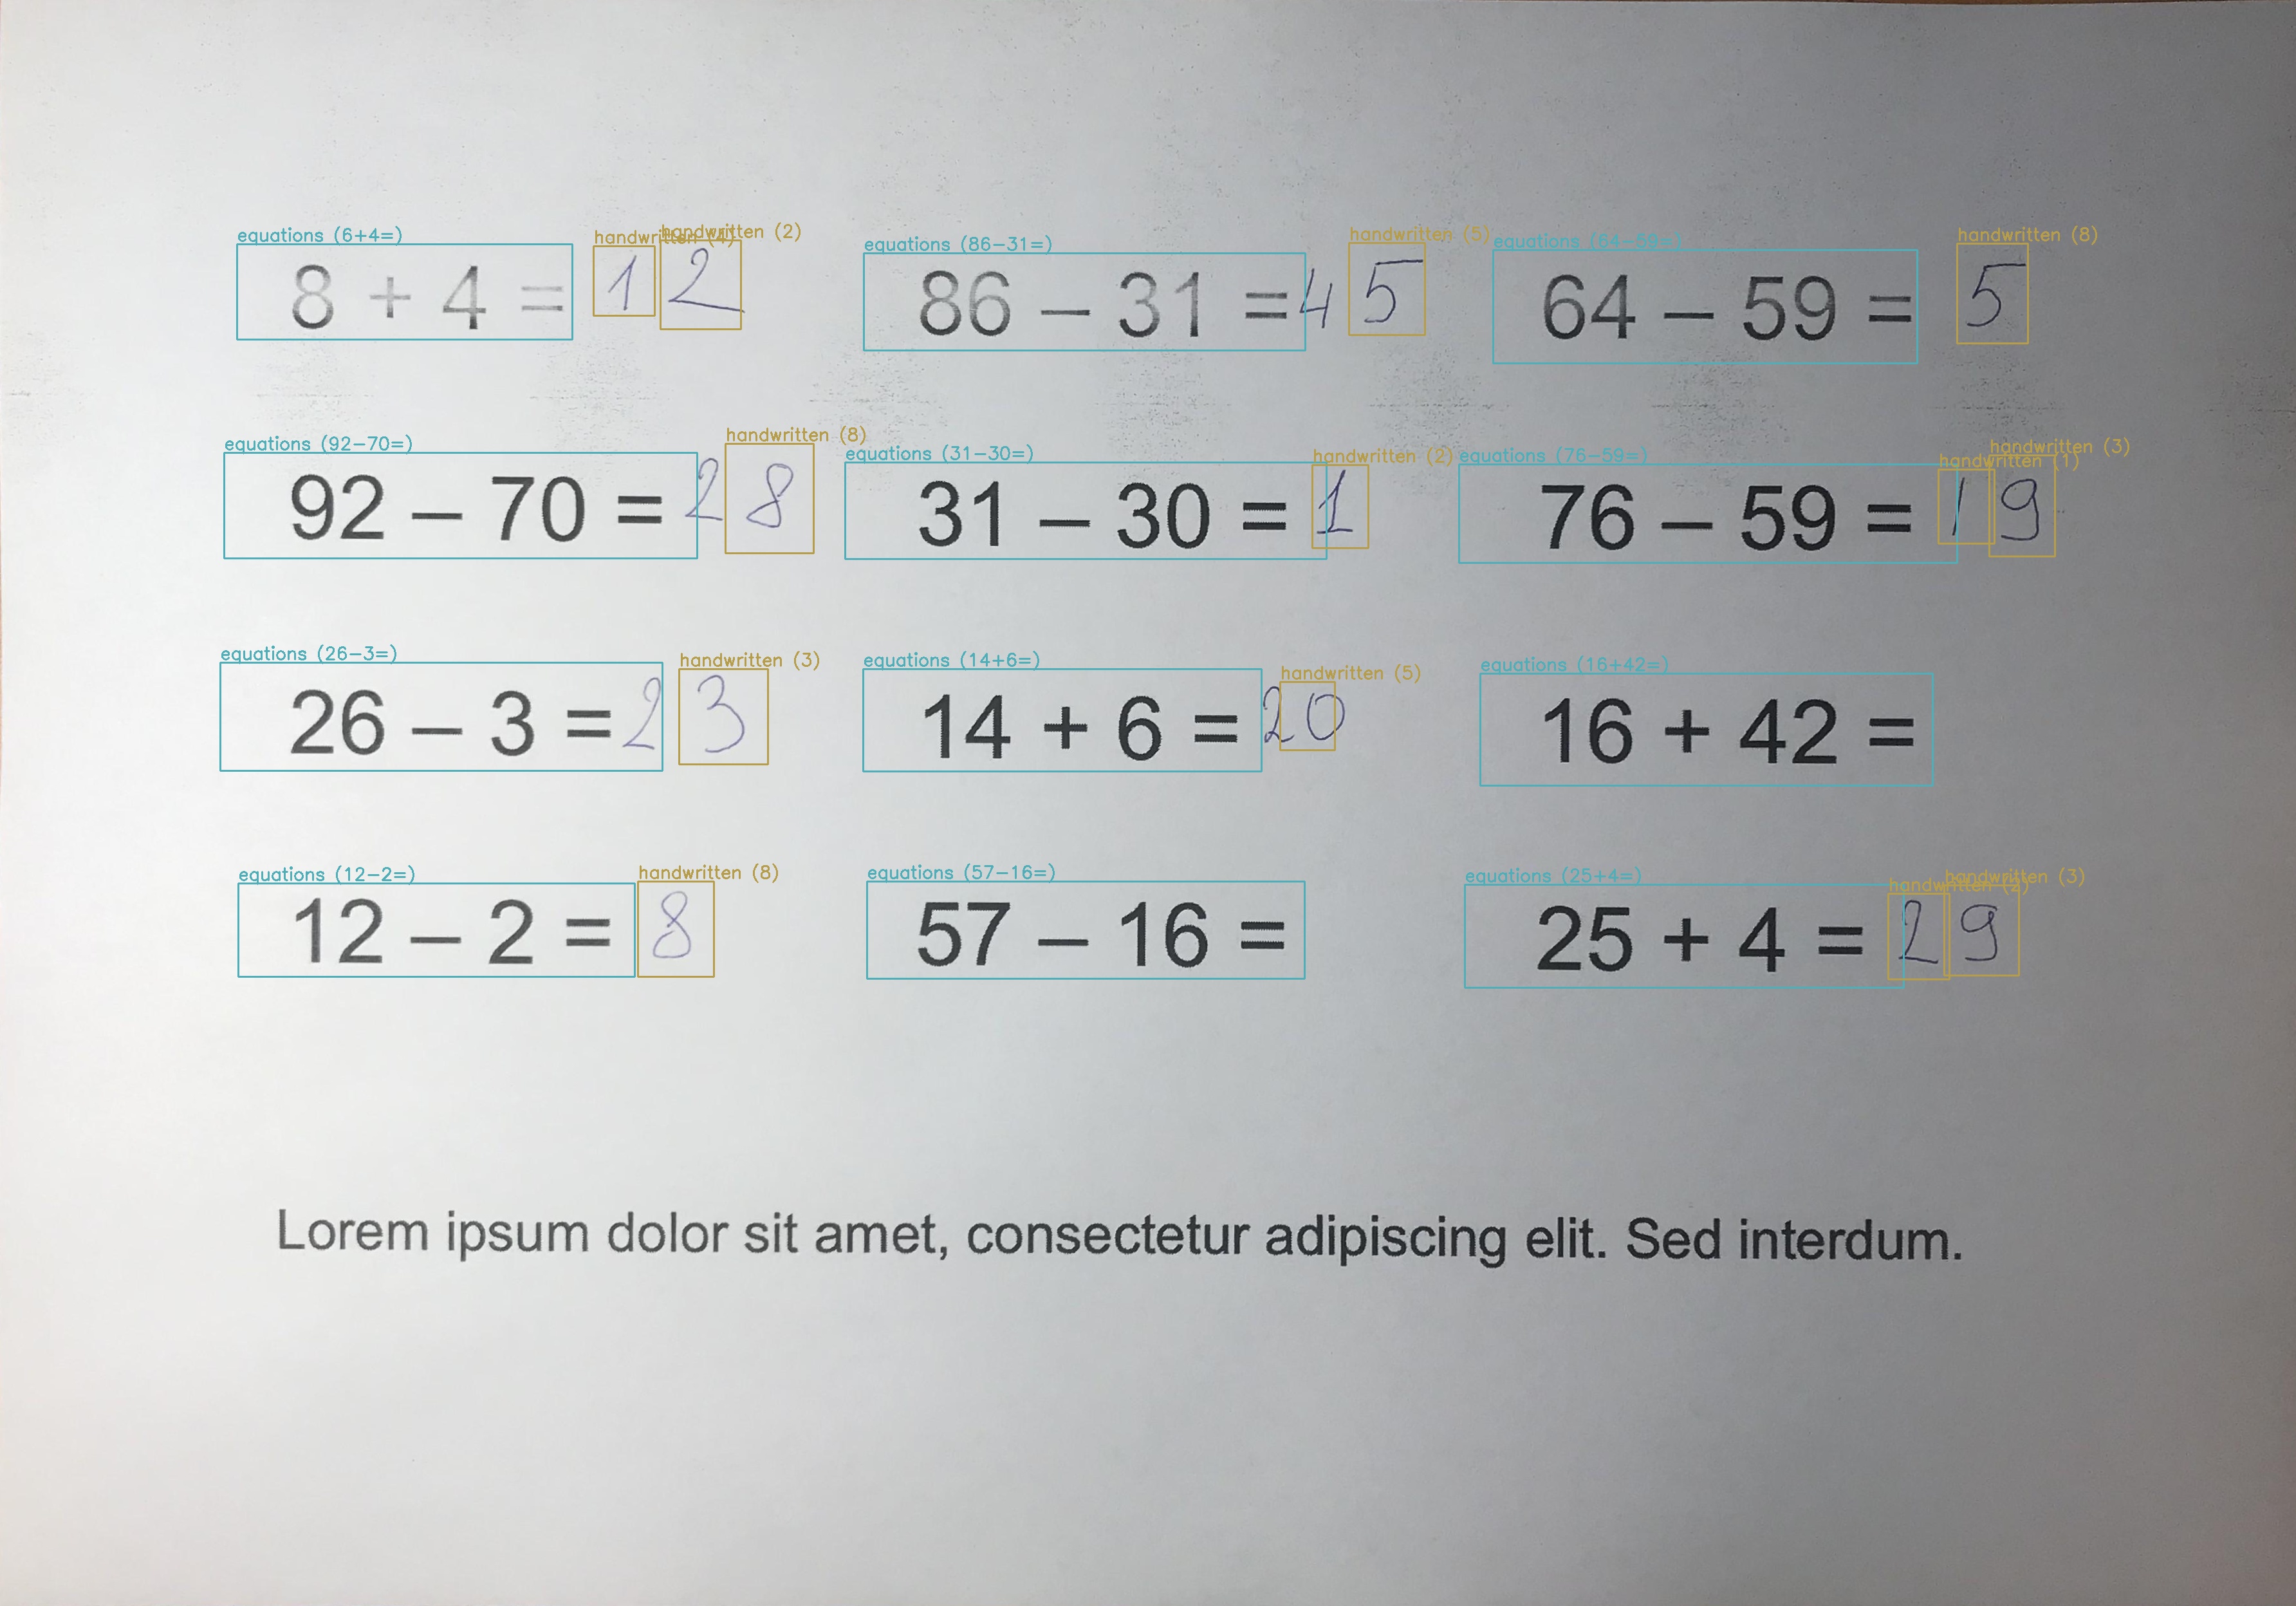 equations (6+4=) handwritten (4) handwritten (2) equations (86-31=) handwritten (5) equations (64-59=) handwritten (8)
8 + 4 = 12 86 – 31 = 45 64 – 59 = 5
equations (92-70=) handwritten (8) equations (31-30=) handwritten (2) equations (76-59=) handwritten (1) handwritten (3)
92 – 70 = 28 31 – 30 = 1 76 – 59 = 19
equations (26-3=) handwritten (3) equations (14+6=) handwritten (5) equations (16+42=)
26 – 3 = 23 14 + 6 = 20 16 + 42 =
equations (12-2=) handwritten (8) equations (57-16=) equations (25+4=) handwritten (2) handwritten (3)
12 – 2 = 8 57 – 16 = 25 + 4 = 29
Lorem ipsum dolor sit amet, consectetur adipiscing elit. Sed interdum.